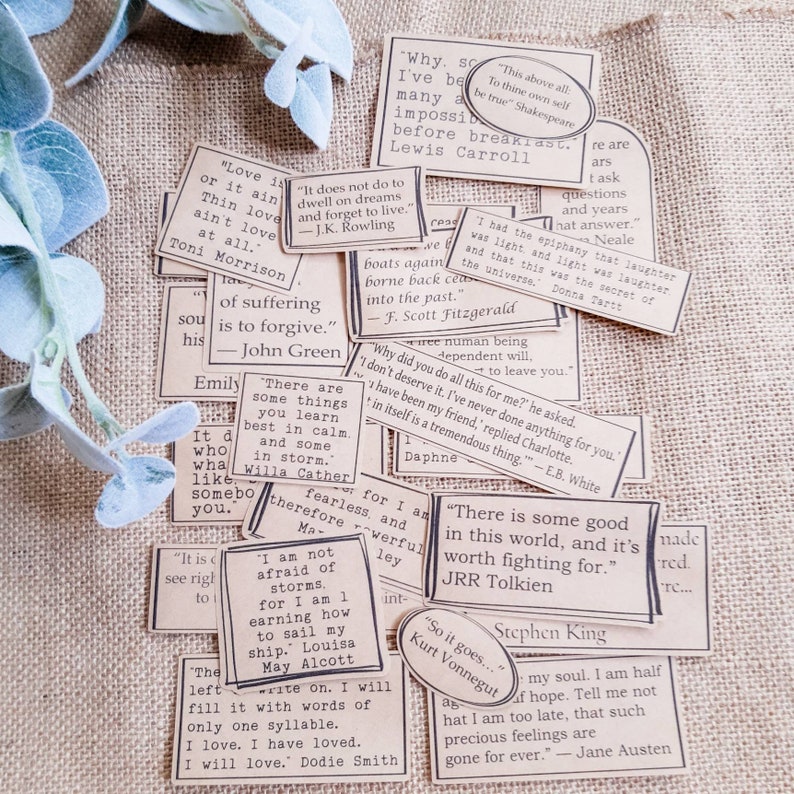 "Why, so
I've be
many a
impossib
before breakfast."
Lewis Carroll
"This above all:
To thine own self
be true" Shakespeare
re are
ars
t ask
questions
and years
that answer."
Neale
"Love is
or it ain'
Thin love
ain't love
at all."
Toni Morrison
"It does not do to
dwell on dreams
and forget to live."
— J.K. Rowling
boats again
borne back ceas
into the past."
— F. Scott Fitzgerald
"I had the epiphany that laughter
was light, and light was laughter,
and that this was the secret of
the universe." Donna Tartt
of suffering
is to forgive."
— John Green
sou
his
Emily
free human being
dependent will,
t to leave you."
"Why did you do all this for me?' he asked.
'I don't deserve it. I've never done anything for you.'
'You have been my friend,' replied Charlotte.
t in itself is a tremendous thing.'" — E.B. White
"There are
some things
you learn
best in calm,
and some
in storm."
Willa Cather
It d
who
wha
like,
somebo
you."
Daphne
, for I am
fearless, and
therefore powerful
Ma
ley
"There is some good
in this world, and it's
worth fighting for."
JRR Tolkien
made
red.
re...
Stephen King
"It is o
see righ
to
aint-
"I am not
afraid of
storms,
for I am l
earning how
to sail my
ship." Louisa
May Alcott
"So it goes..."
Kurt Vonnegut
"The
left write on. I will
fill it with words of
only one syllable.
I love. I have loved.
I will love." Dodie Smith
my soul. I am half
ag f hope. Tell me not
hat I am too late, that such
precious feelings are
gone for ever." — Jane Austen